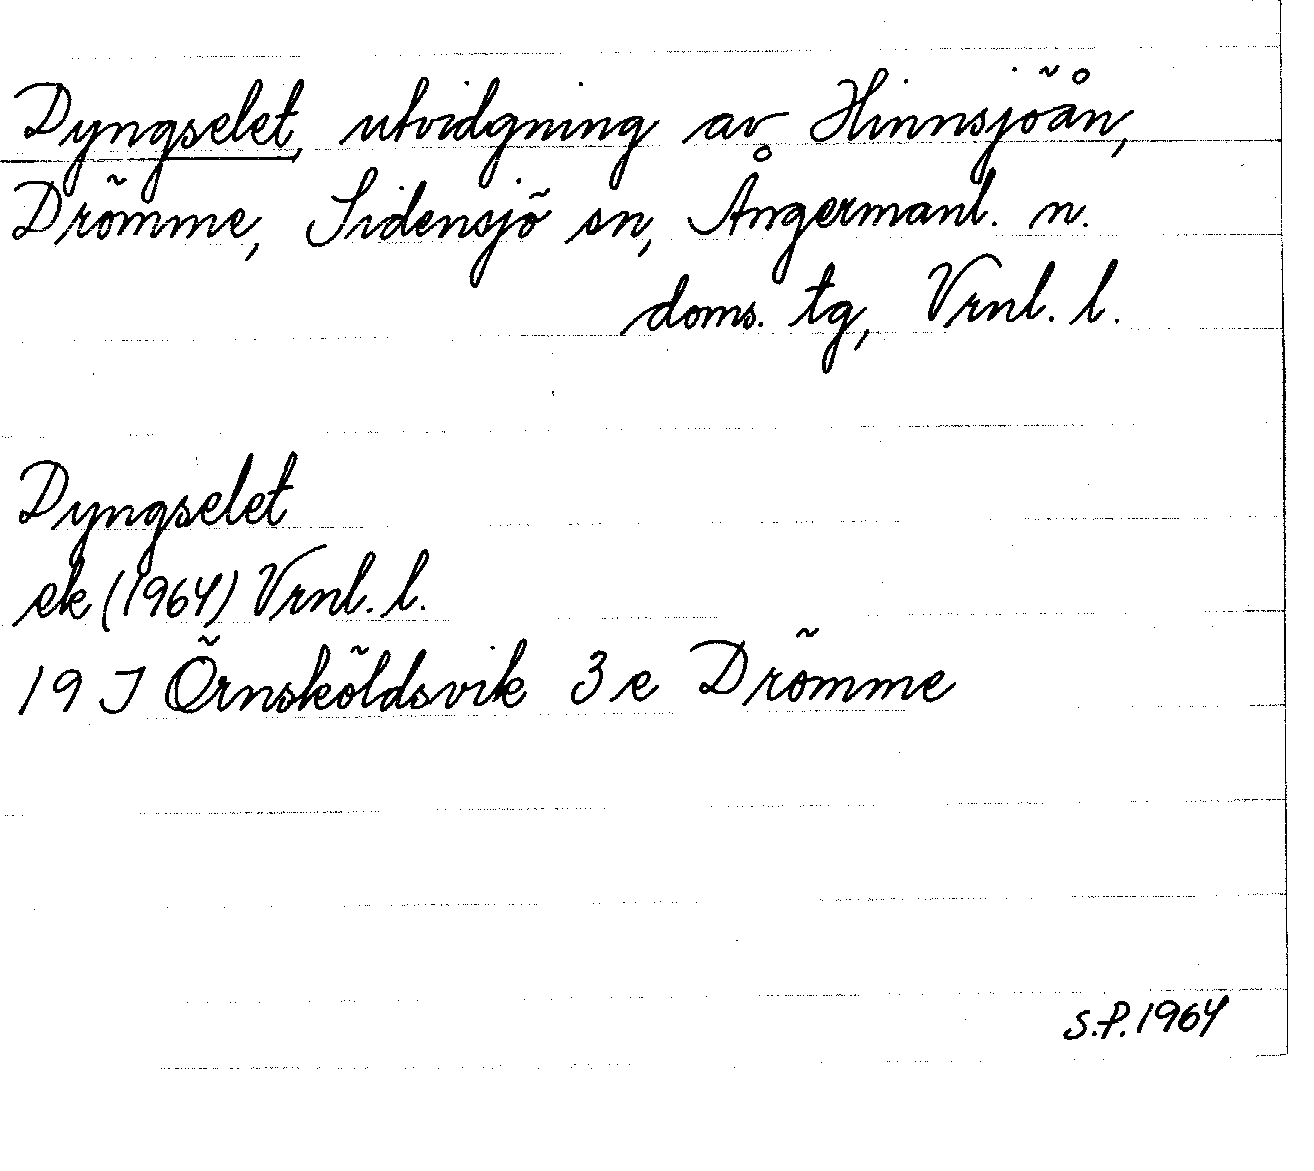 Dyngselet, utvidgning av Hinnsjöån,
Drömme, Sidensjö sn, Ångermanl. n.
doms. tg, Vrnl. l.
Dyngselet
ek (1964) Vrnl. l.
19 J Örnsköldsvik 3 e Drömme
S.P. 1964